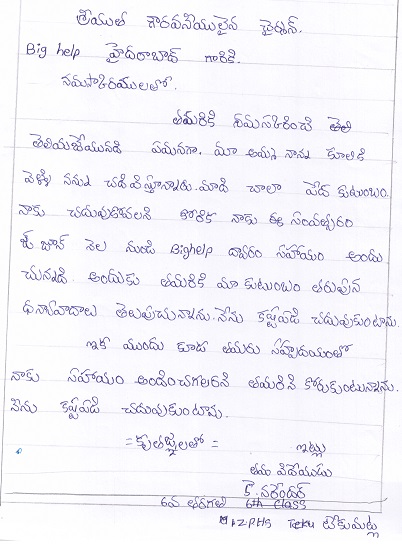 శ్రీయుత గౌరవనీయులైన ఛైర్మన్.
Big help హైదరాబాద్ గారికి.
నమస్కారములతో.
తమరికి నమస్కరించి తెలి
తెలియజేయునది ఏమనగా. మా అమ్మ నాన్న కూలికి
వెళ్ళి నన్ను చదివిస్తూన్నారు. మాది చాలా పేద కుటుంబం.
నాకు చదువుకోవాలని కోరిక నాకు ఈ సంవత్సరం
జూన్ నెల నుండి Bighelp ద్వారం సహాయం అందు
చున్నది. అందుకు తమరికి మా కుటుంబం తరుపున
ధన్యావాదాలు తెలుపుచున్నాను. నేను కష్టపడి చదువుకుంటాను.
ఇక ముందు కూడ తమరు సహృదయంతో
నాకు సహాయం అందించగలరని తమరిని కోరుకుంటున్నాను.
నేను కష్టపడి చదువుకుంటాను.
= కృతజ్ఞలతో = ఇట్లు
తమ విధేయుడు
కె. నరేందర్
6వ తరగతి 6th class
ZPHS Teku టేకుమట్ల